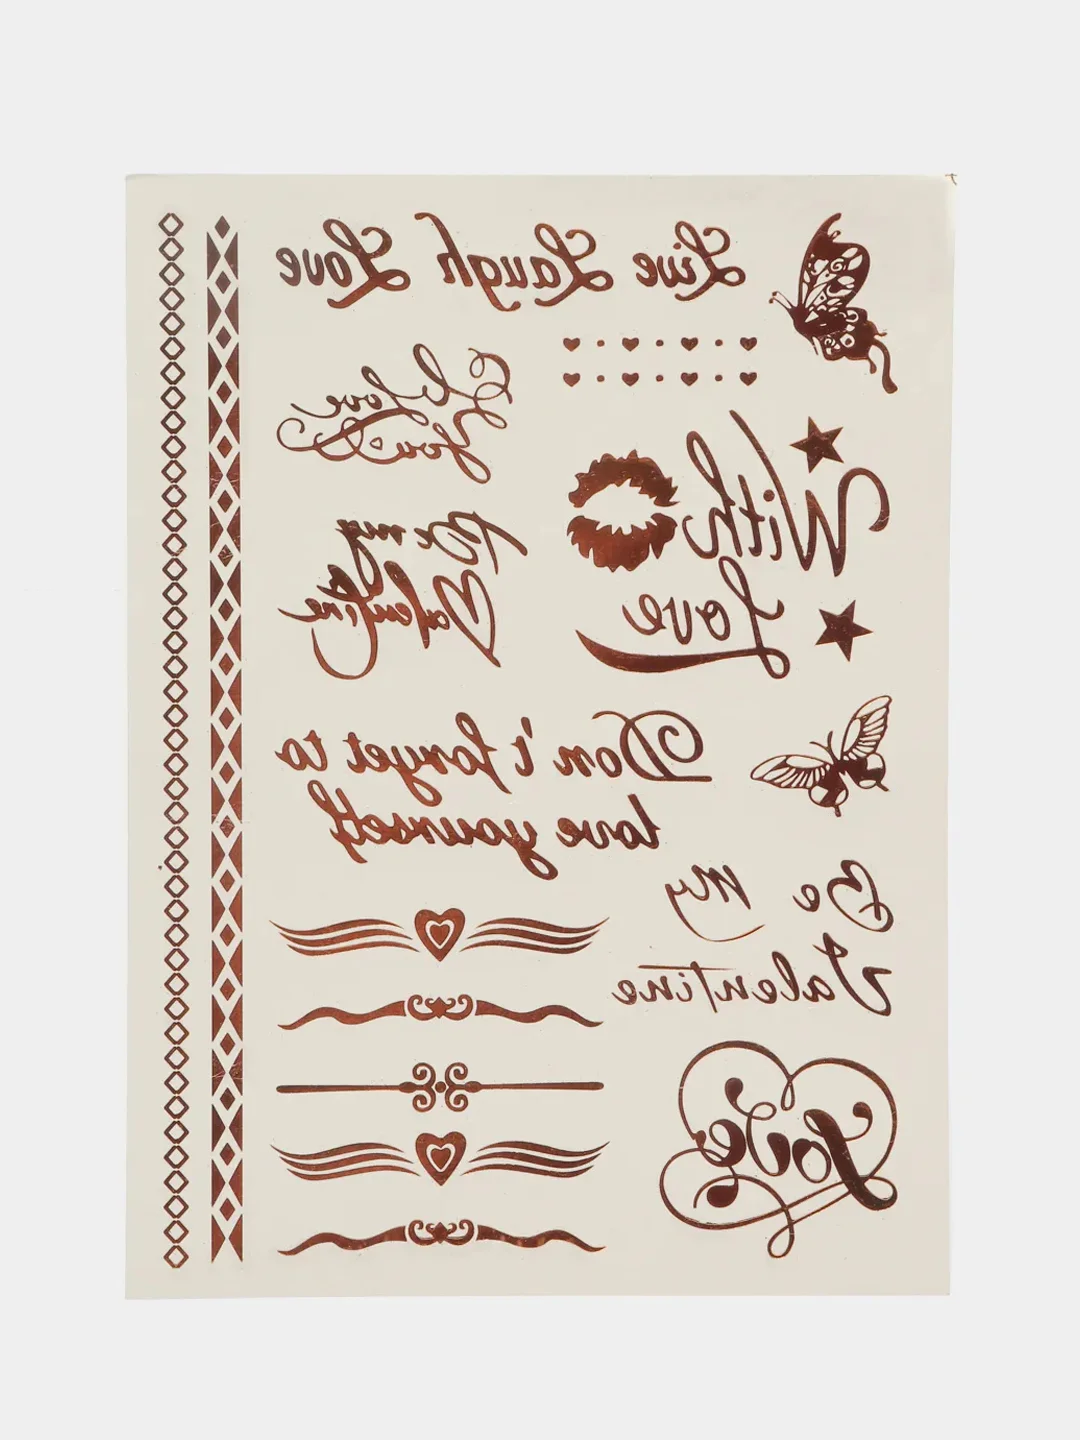 Live Laugh Love
I Love
You
With
Love
Be my
Valentine
Don't forget to
love yourself
Be My
Valentine
Love